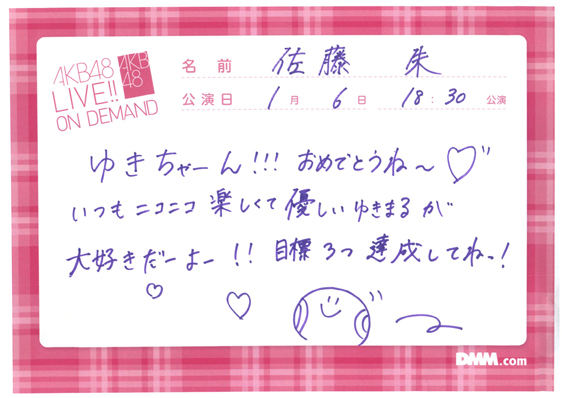 AKB48
LIVE!!
ON DEMAND
AKB
48
名前 佐藤 朱
公演日 1月 6日 18:30 公演
ゆきちゃーん!!! おめでとうね〜♡
いつもニコニコ 楽しくて 優しい ゆきまるが
大好きだーよー!! 目標 3つ 達成してねっ!
DMM.com